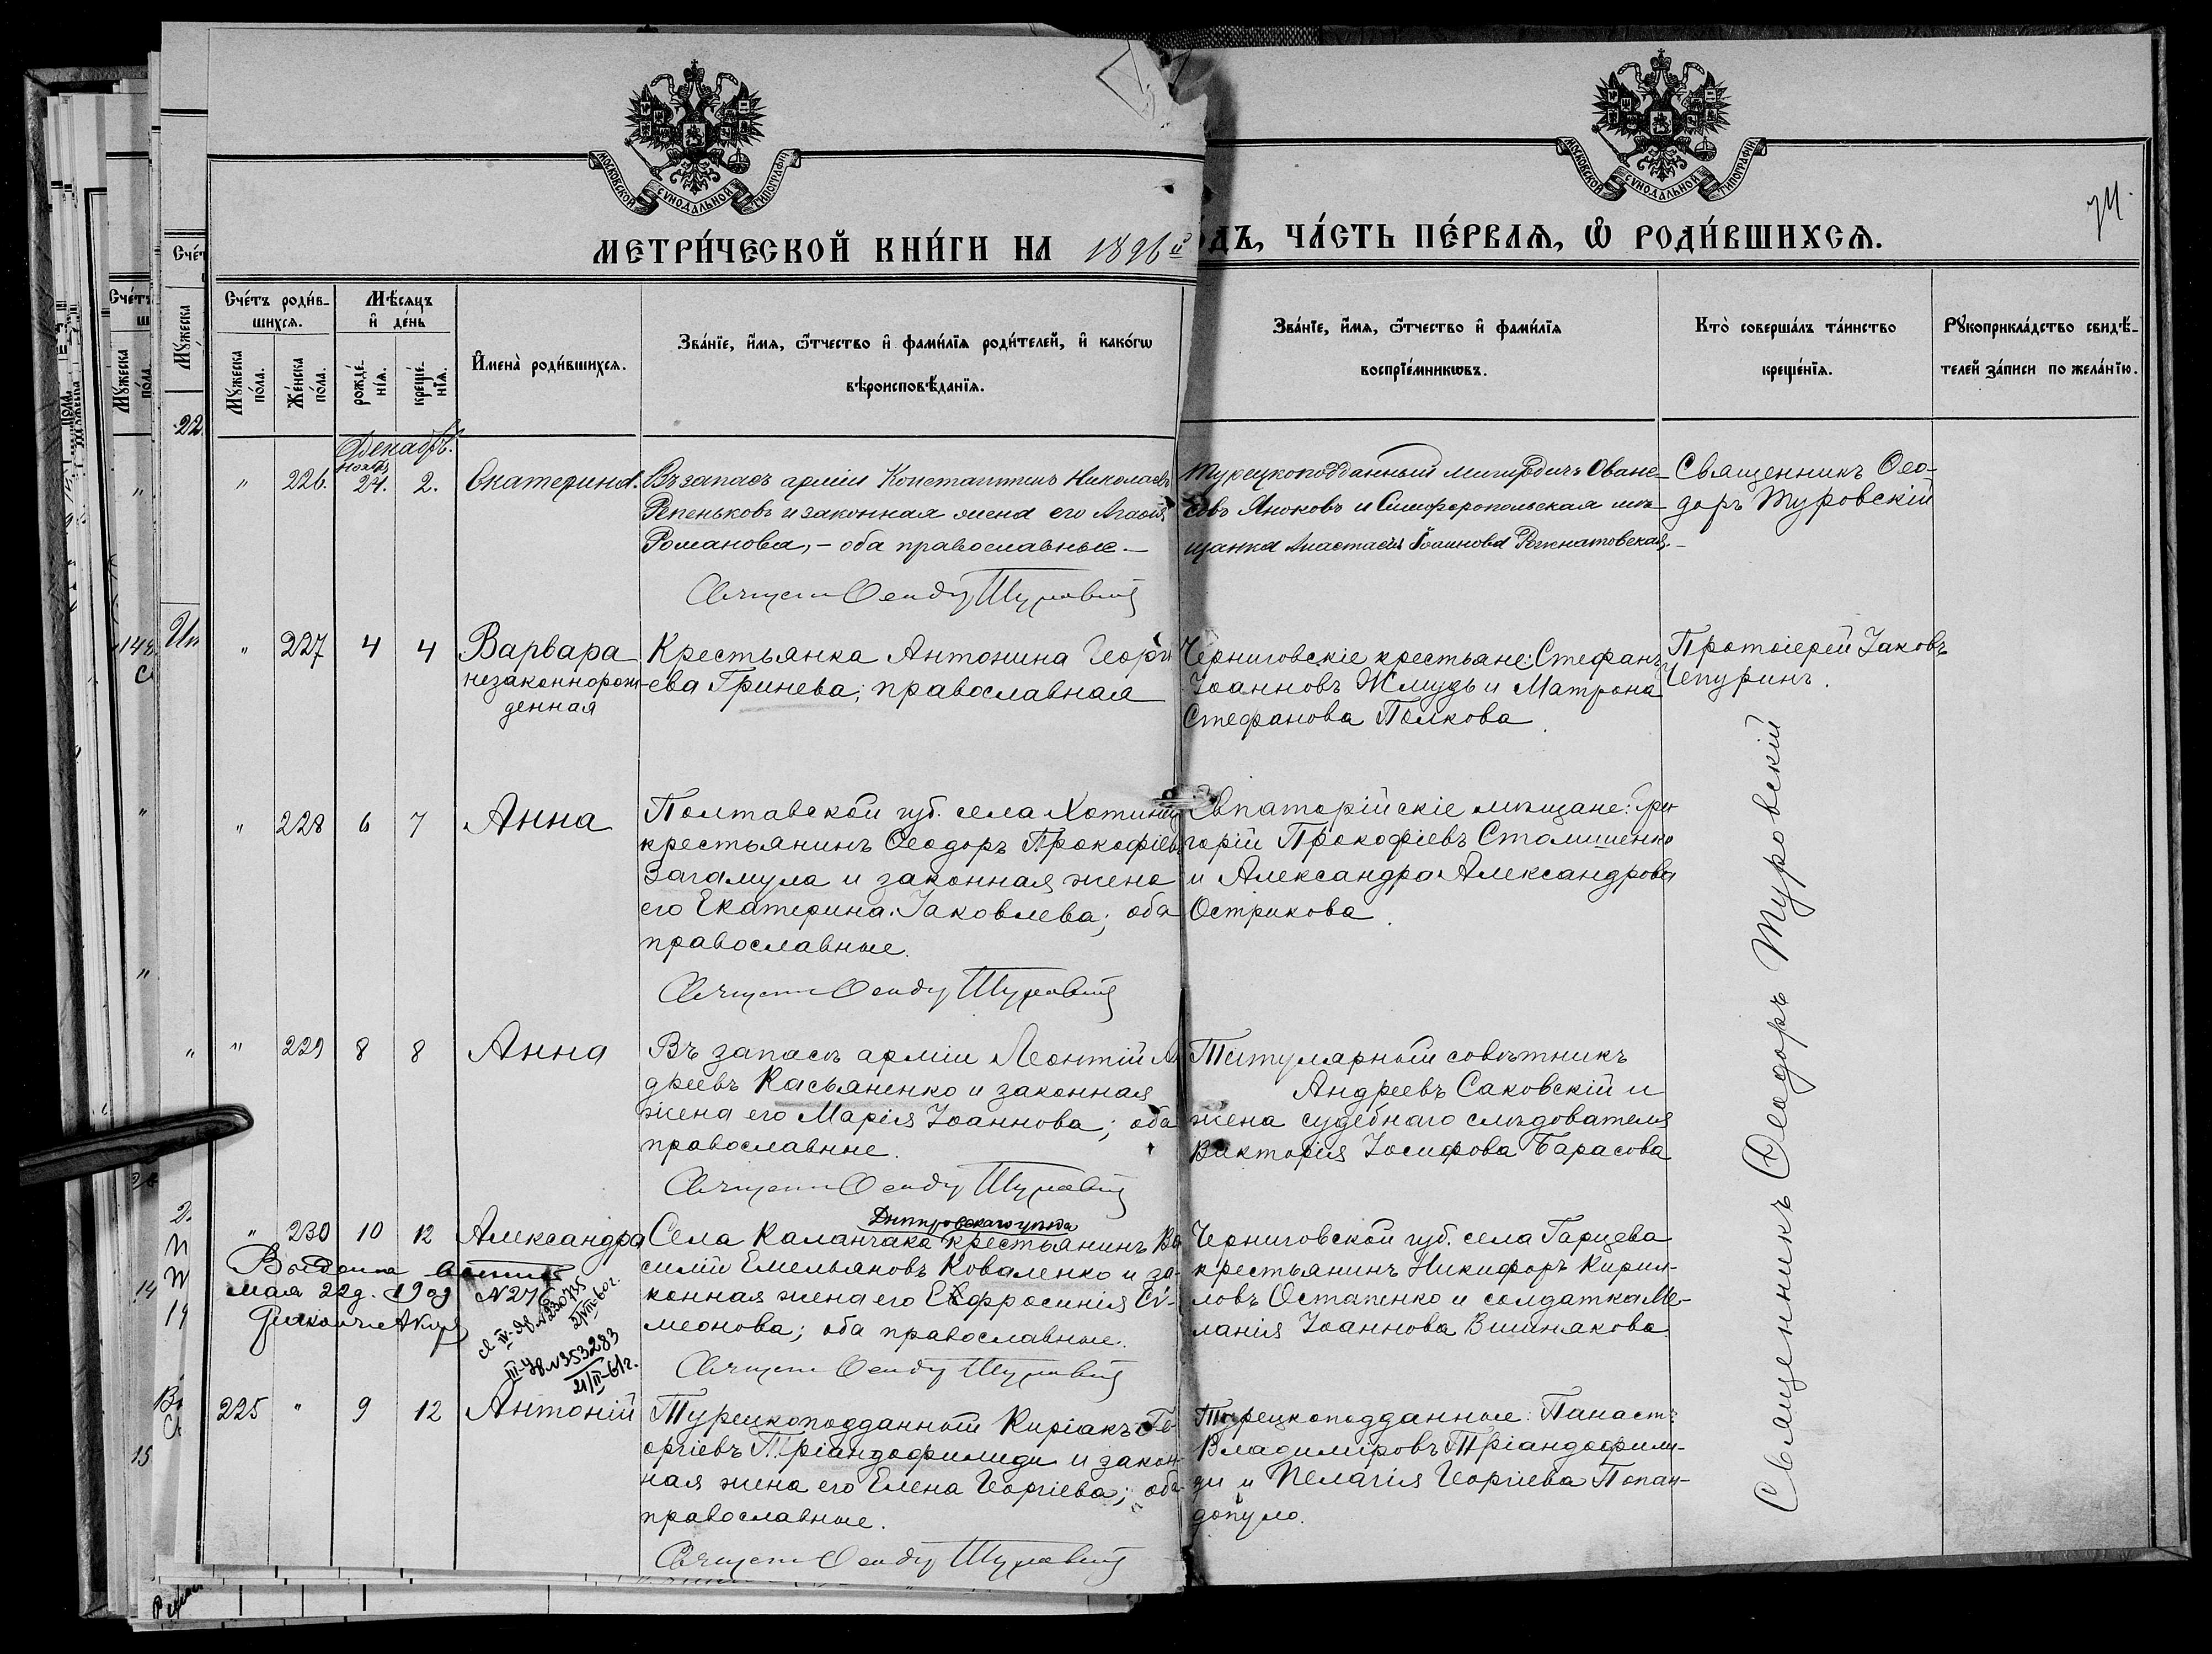 МОСКОВСКОЙ СѴНОДАЛЬНОЙ ТИПОГРАФІИ
МОСКОВСКОЙ СѴНОДАЛЬНОЙ ТИПОГРАФІИ
74.
МЕТРИ́ЧЕСКОЙ КНИ́ГИ НА 1896й
ДЪ, ЧА́СТЬ ПЕ́РВАѦ, Ѡ҆ РОДИ́ВШИХСѦ.
Сче́тъ роди́в-
шихсѧ.
Мꙋ́жеска по́ла.
Же́нска по́ла.
Мѣ́сѧцъ
и҆ де́нь
рожде́нїѧ.
креще́нїѧ.
И҆мена̀ роди́вшихсѧ.
Зва́нїе, и҆́мѧ, ѻ҆́тчество и҆ фами́лїѧ роди́телей, и҆ како́гѡ
вѣроисповѣ́данїѧ.
Зва́нїе, и҆́мѧ, ѻ҆́тчество и҆ фами́лїѧ
воспрїе́мникѡвъ.
Кто̀ соверша́лъ та́инство
креще́нїѧ.
Рꙋкоприкла́дство свидѣ́-
телей за́писи по жела́нїю.
Декабрь.
Нояб.
" 226. 24. 2. Екатерина.
Въ запасѣ арміи Константинъ Николаевъ
Репеньковъ и законная жена его Агаѳія
Романова, – оба православные. –
Турецкоподданный Мигирдичъ Ѳване-
совъ Яноковъ и Симферопольская мѣ-
щанка Анастасія Іоаннова
Священникъ Ѳео-
доръ Туровскій
" 227 4 4 Варвара
незаконнорож-
денная
Крестьянка Антонина Георгі
ева Гринева; православная
Черниговскіе крестьяне: Стефанъ
Іоанновъ Жмудь и Матрона
Стефанова Полкова.
Протоіерей Іаковъ
Чепуринъ.
" 228 6 7 Анна
Полтавской губ. села
крестьянинъ Ѳеодоръ Прокофіевъ
Загамула и законная жена
его Екатерина Іаковлева; оба
православные.
Евпаторійскіе мѣщане: Гри-
горій Прокофіевъ Столишенко
и Александра Александрова
Острикова.
" 229 8 8 Анна
Въ запасѣ арміи Леонтій Ан
дреевъ Касьяненко и законная
жена его Марія Іоаннова; оба
православные.
Титулярный совѣтникъ
Андреевъ Саковскій и
жена судебнаго слѣдователя
Викторія Іосифова Тарасова
" 230 10 12 Александра
Днѣпровскаго уѣзда
Села Каланчака крестьянинъ Ва
силій Емельяновъ Коваленко и за-
конная жена его Евфросинія Сѵ-
меонова; оба православные.
Черниговской губ. села Гарцева
крестьянинъ Никифоръ Кирил-
ловъ Остапенко и солдатка Ме-
ланія Іоаннова Вишнякова.
Выдана
мая 22 д. 1909 N 276
III-УВ N 353283
21/II-61г.
225 " 9 12 Антоній
Турецкоподданный Киріакъ Ге-
оргіевъ Тріандофилиди и закон-
ная жена его Елена Георгіева; оба
православные.
Турецкоподданные: Панастъ
Владиміровъ Тріандофили-
ди и Пелагія Георгіева Попан-
допуло.
Священникъ Ѳеодоръ Туровскій